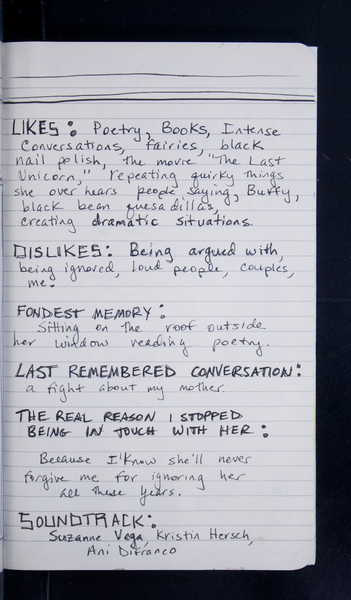 LIKES: Poetry, Books, Intense
Conversations, fairies, black
nail polish, the movie "The Last
Unicorn," repeating quirky things
she over hears people saying, Buffy,
black bean quesadillas,
creating dramatic situations.
DISLIKES: Being argued with,
being ignored, loud people, couples,
me.
FONDEST MEMORY:
Sitting on the roof outside
her window reading poetry.
LAST REMEMBERED CONVERSATION:
a fight about my mother.
THE REAL REASON I STOPPED
BEING IN TOUCH WITH HER:
Because I know she'll never
forgive me for ignoring her
all these years.
SOUNDTRACK:
Suzanne Vega, Kristin Hersch,
Ani Difranco